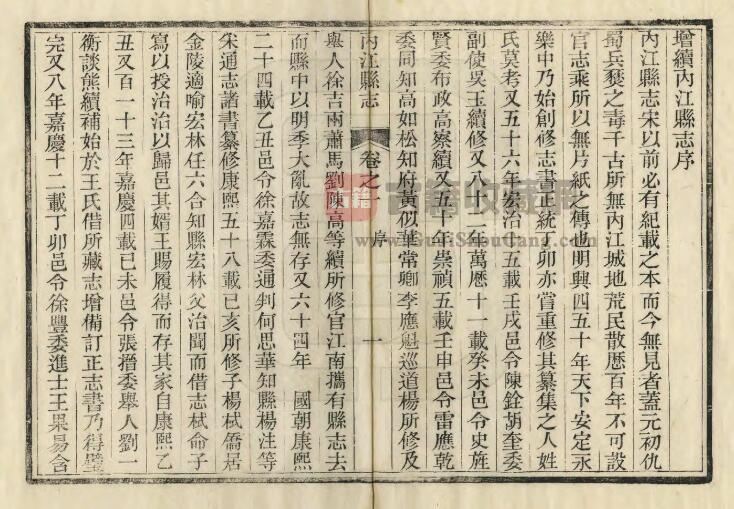 增續內江縣志序
內江縣志宋以前必有紀載之本而今無見者蓋元初仇
蜀兵燹之毒千古所無內江城地荒民散歷百年不可設
官志乘所以無片紙之傳也明興四五十年天下安定永
樂中乃始創修志書正統乙卯亦嘗重修其纂集之人姓
氏莫考又五十六年宏治十五載壬戌邑令陳銓胡奎委
副使吳玉續修又八十二年萬曆十一載癸未邑令史旌
賢委布政高察續又五十年崇禎五載壬申邑令雷應乾
委同知高如松知府黃似華常卿李應魁巡道楊所修及
內江縣志
卷之一
序
一
舉人徐吉兩蕭馬劉陳高等續所修官江南攜有縣志去
而縣中以明季大亂故志無存又六十四年 國朝康熙
二十四載乙丑邑令徐嘉霖委通判何思華知縣楊注等
朱通志諸書纂修康熙五十八載己亥所修子楊栻僑居
金陵適喻宏林任六合知縣宏林父治聞而借志栻命子
寫以授治治以歸邑其婿王賜履得而存其家自康熙乙
丑又百一十三年嘉慶四載己未邑令張搢委舉人劉一
衡談熊續補始於王氏借所藏志增備訂正志書乃得璧
完又八年嘉慶十二載丁卯邑令徐豐委進士王果易含
古籍收藏
www.GuJiShouCang.com